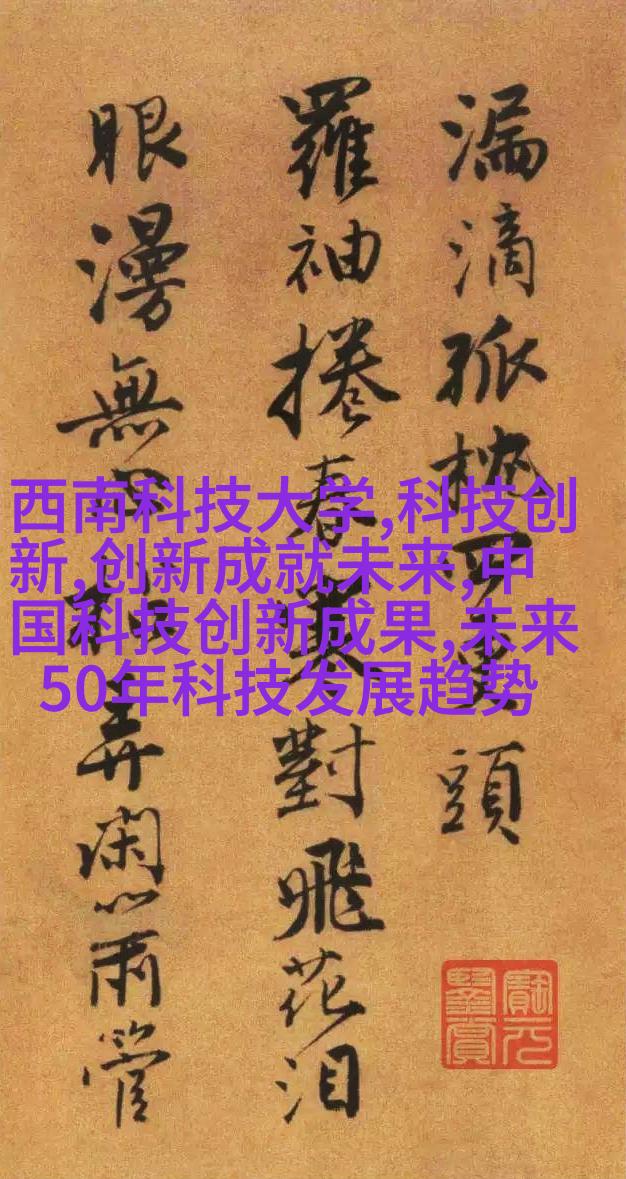 漏滴孤枕更頭
羅袖捲春寒對飛花泪
眼漫無弄閑心兩管
西南科技大学,科技创
新,创新成就未来,中
国科技创新成果,未来
50年科技发展趋势